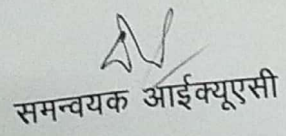 समन्वयक आईक्यूएसी